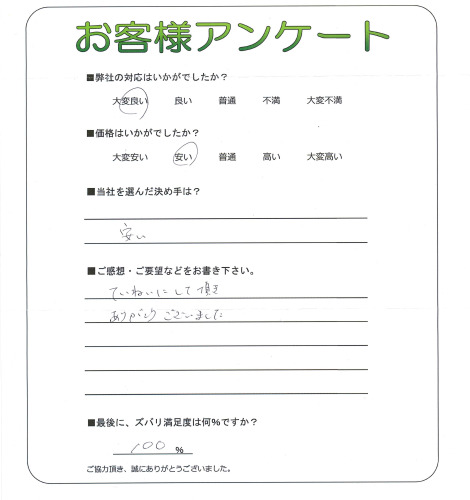 お客様アンケート
■弊社の対応はいかがでしたか？
大変良い 良い 普通 不満 大変不満
■価格はいかがでしたか？
大変安い 安い 普通 高い 大変高い
■当社を選んだ決め手は？
安い
■ご感想・ご要望などをお書き下さい。
ていねいにして頂き
ありがとうございました
■最後に、ズバリ満足度は何%ですか？
100 %
ご協力頂き、誠にありがとうございました。